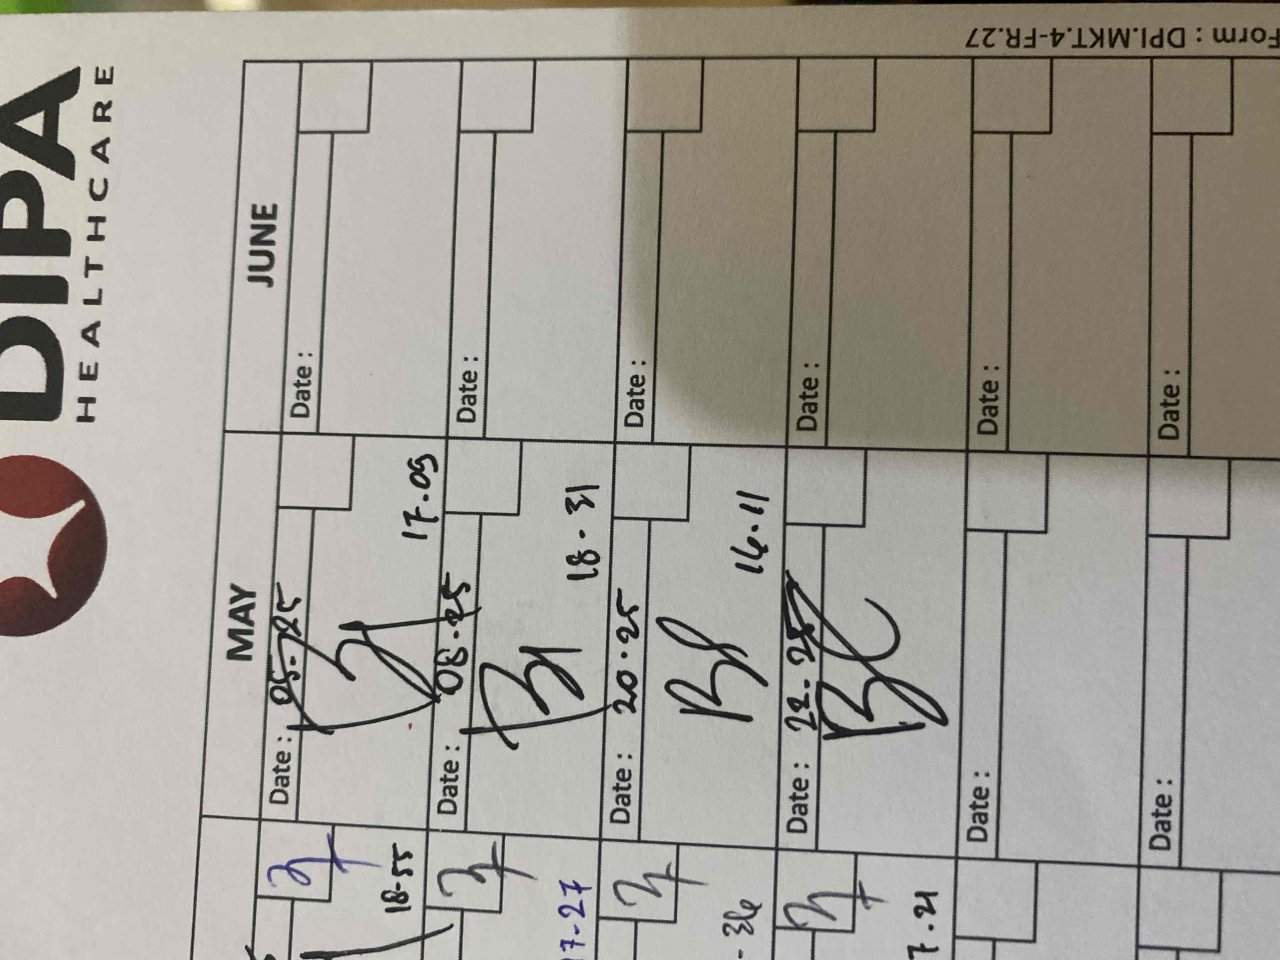 DIPA
HEALTHCARE
MAY
JUNE
Date : 05-25
17.09
Date :
Date : 08.25
18.31
Date :
Date : 20.25
16.11
Date :
Date : 22.25
Date :
Date :
Date :
Date :
Date :
18-55
17-27
7.21
Form : DPI.MKT.4-FR.27